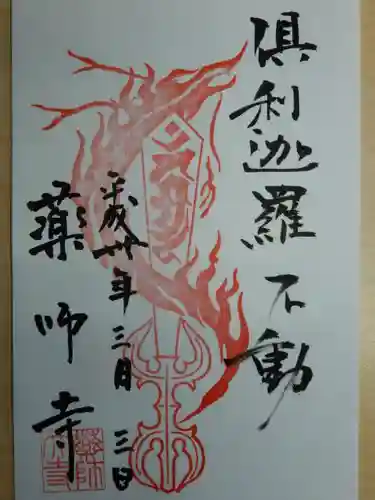 倶利迦羅不動
平成卅年三月三日
薬師寺